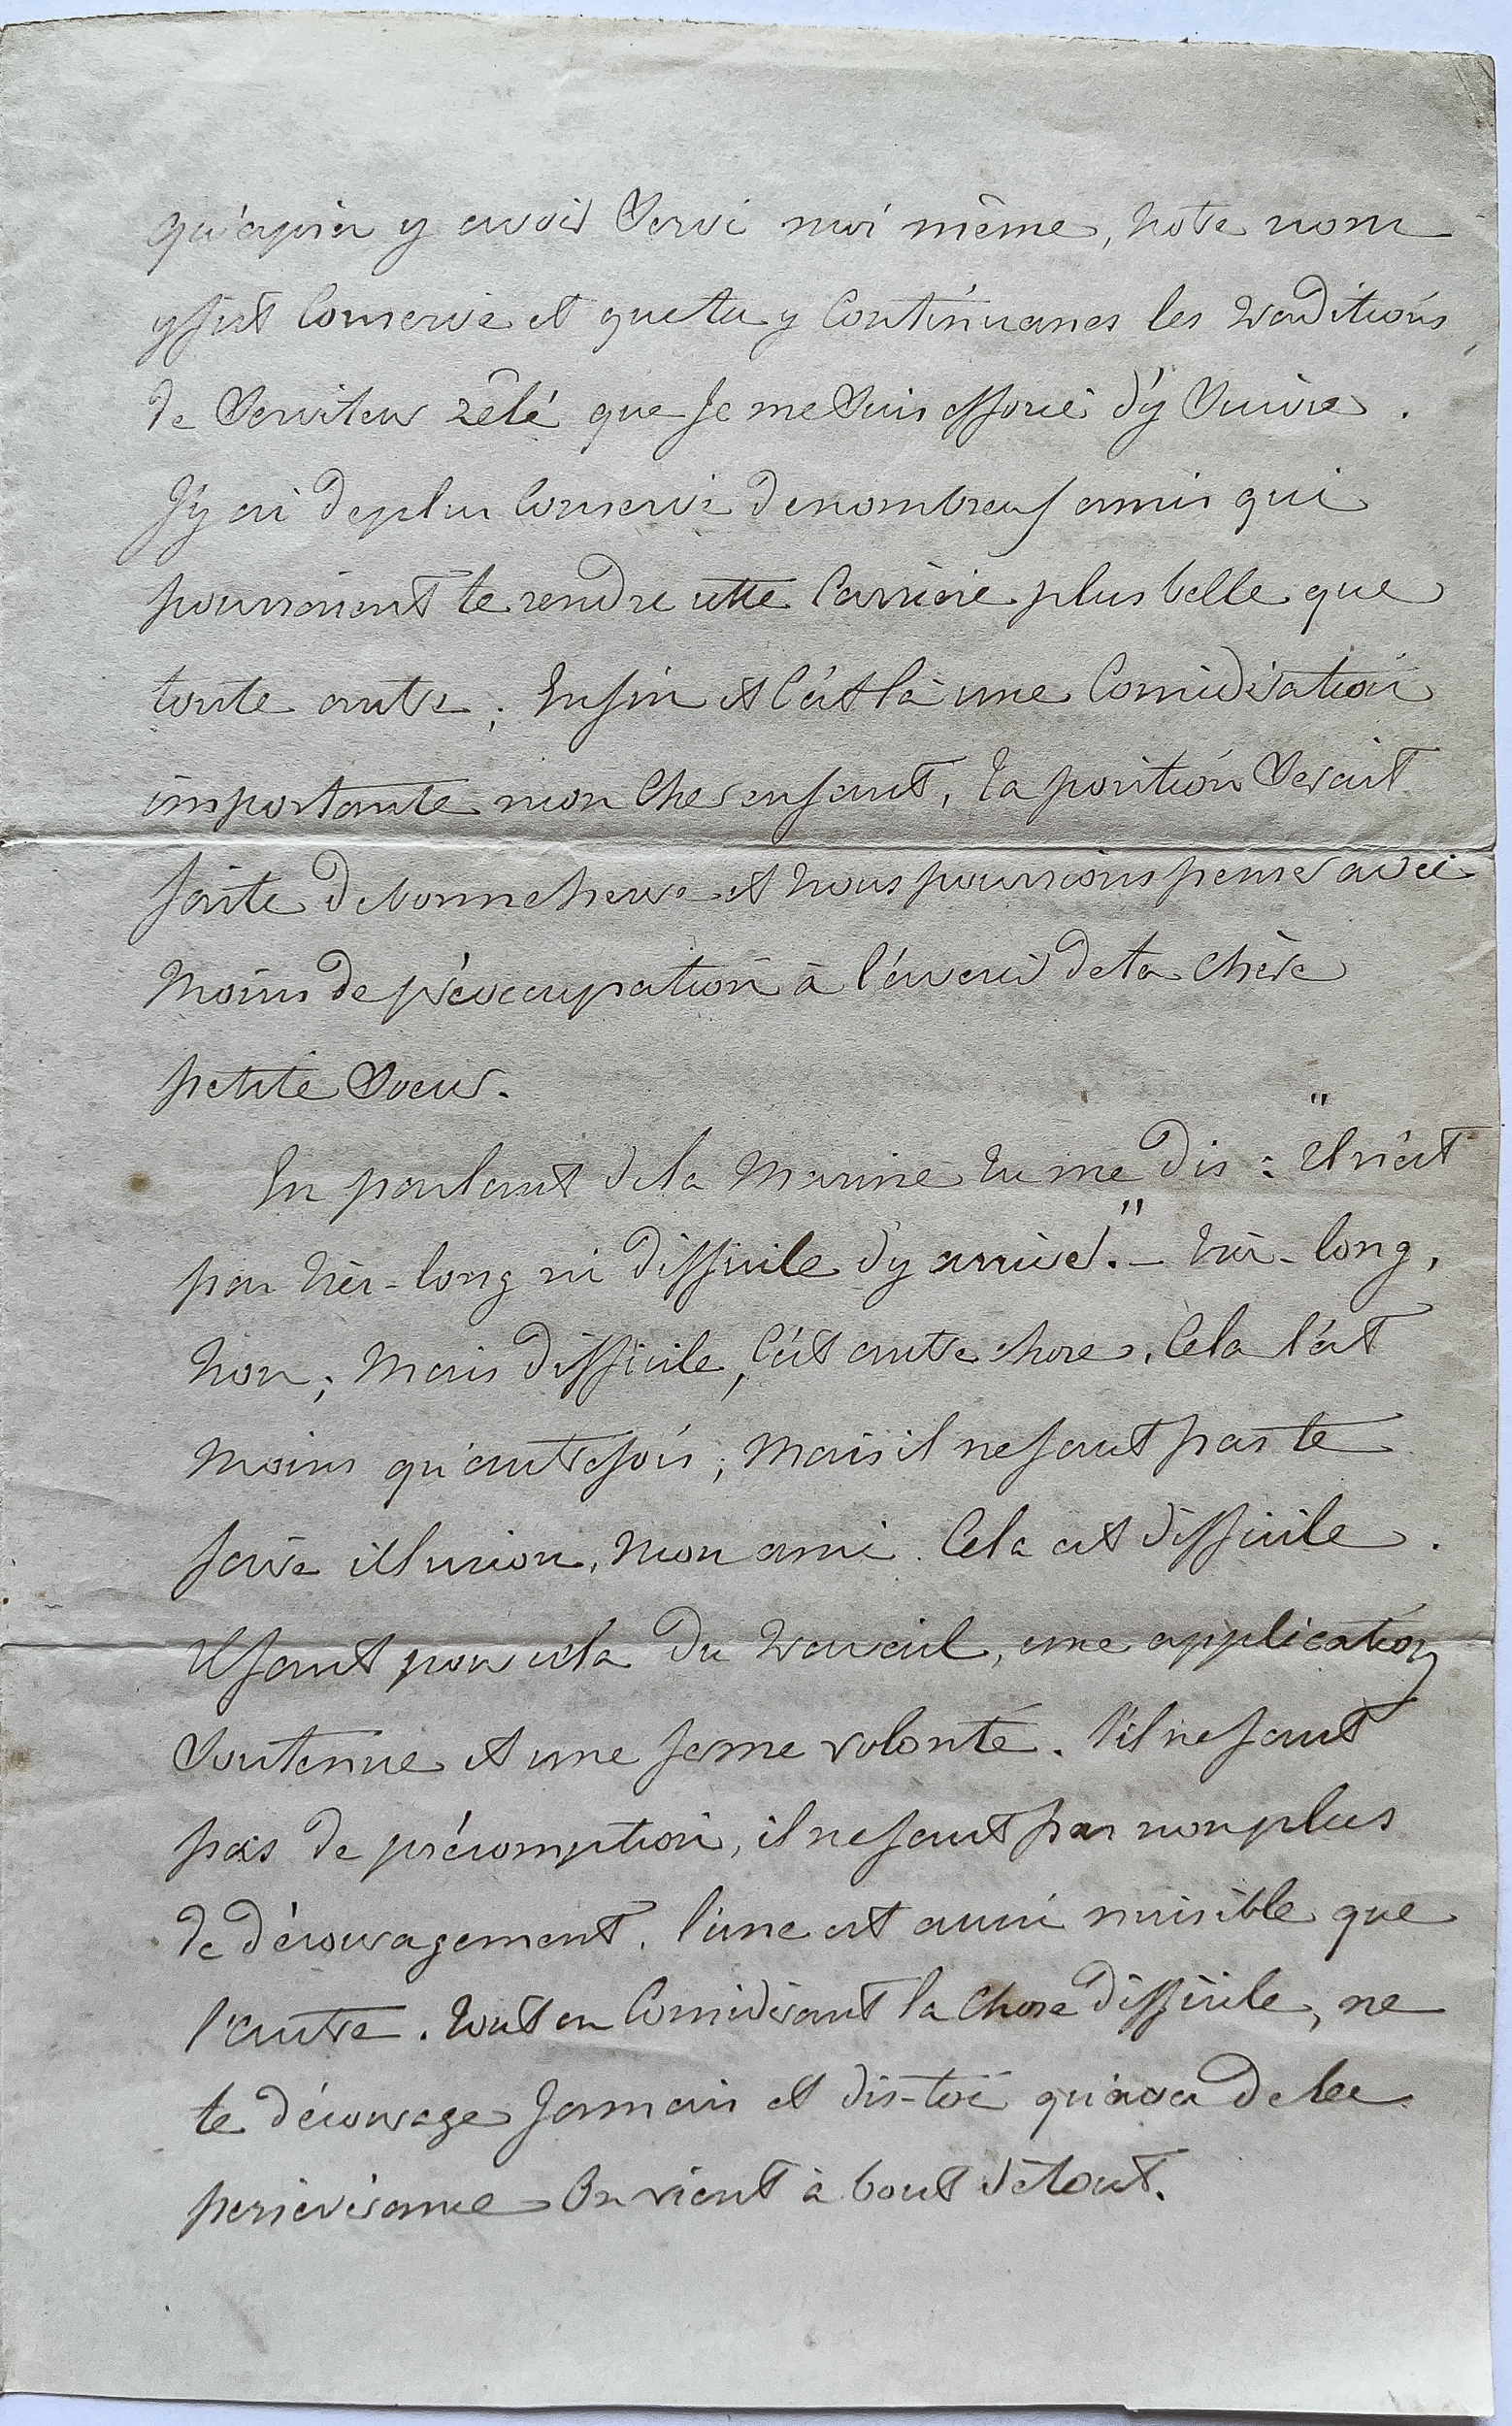 qu'après y avoir Servi moi même, notre nom
y fut Conservé et que tu y Continuasses les traditions,
de Serviteur zélé que Je me Suis efforcé d'y Suivre.
J'y ai de plus Conservé de nombreux amis qui
pourraient te rendre cette Carrière plus belle que
toute autre; Enfin et C'est là une Considération
importante mon Cher enfant, ta position Serait
faite de bonne heure et nous pourrions penser avec
moins de préoccupation à l'avenir de ta Chère
petite Soeur.
En parlant de la Marine tu me dis : "Il n'est
pas très-long ni difficile d'y arriver." — très-long,
non; Mais difficile, C'est autre chose. Cela l'est
moins qu'autrefois; Mais il ne faut pas te
faire illusion, mon ami. Cela est difficile.
Il faut pour cela du travail, une application
Soutenue et une ferme volonté. S'il ne faut
pas de présomption, il ne faut pas non plus
de découragement. l'une est aussi nuisible que
l'autre. tout en Considérant la Chose difficile, ne
te décourage Jamais et dis-toi qu'avec de la
persévérance On vient à bout de tout.